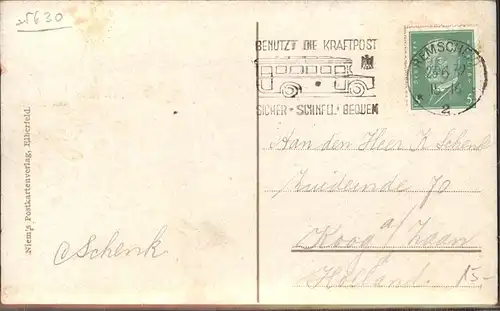 25630
BENUTZT DIE KRAFTPOST
SICHER + SCHNELL + BEQUEM
REMSCHEID
2
5
Niem's Postkartenverlag, Elberfeld.
Aan den Heer K Schenk
Zuideinde 70
Koog a/ Zaan
Holland.
15-
C Schenk